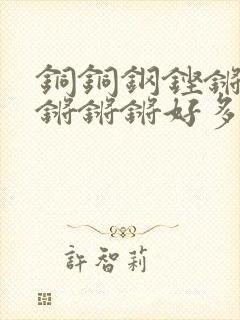 銅銅鋼鏗鏘
鏘鏘鏘好多
許智莉